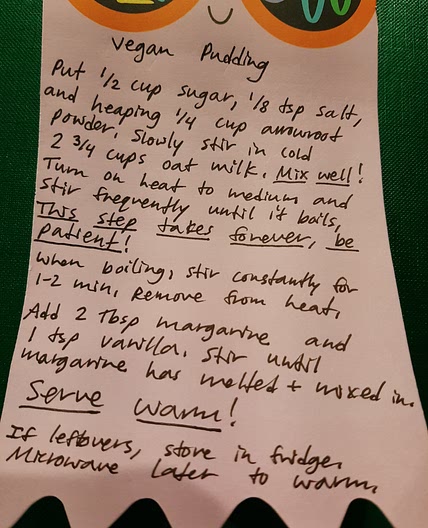 Vegan Pudding
Put 1/2 cup sugar, 1/8 tsp salt,
and heaping 1/4 cup arrowroot
powder. Slowly stir in cold
2 3/4 cups oat milk. Mix well!
Turn on heat to medium and
stir frequently until it boils,
This step takes forever, be
patient!
When boiling, stir constantly for
1-2 min. Remove from heat.
Add 2 Tbsp margarine and
1 tsp vanilla. Stir until
margarine has melted + mixed in.
Serve warm!
If leftovers, store in fridge.
Microwave later to warm.